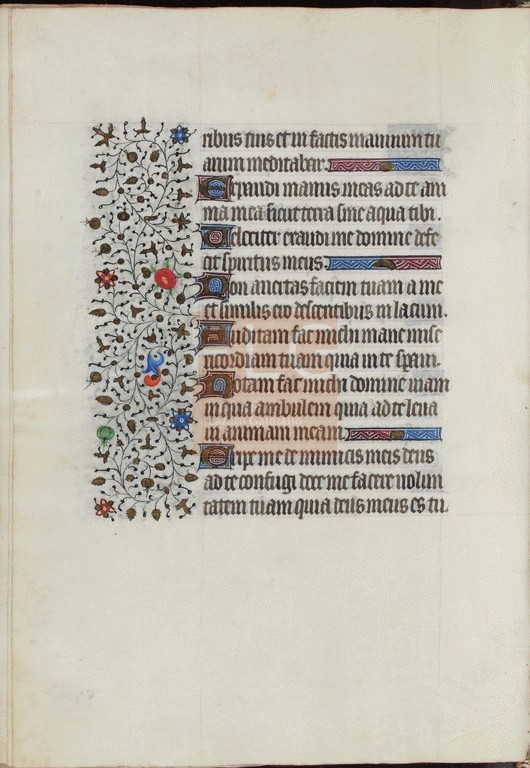 ribus tuis et in factis manuum tu
arum meditabar.
Expandi manus meas ad te ani
ma mea sicut terra sine aqua tibi.
Velociter exaudi me domine defe
cit spiritus meus.
Non avertas faciem tuam a me
et similis ero descentibus in lacum.
Auditam fac michi mane mise
ricordiam tuam quia in te speravi.
Notam fac michi domine viam
in qua ambulem quia ad te leva
vi animam meam.
Eripe me de inimicis meis deus
ad te confugi doce me facere volun
tatem tuam quia deus meus es tu.